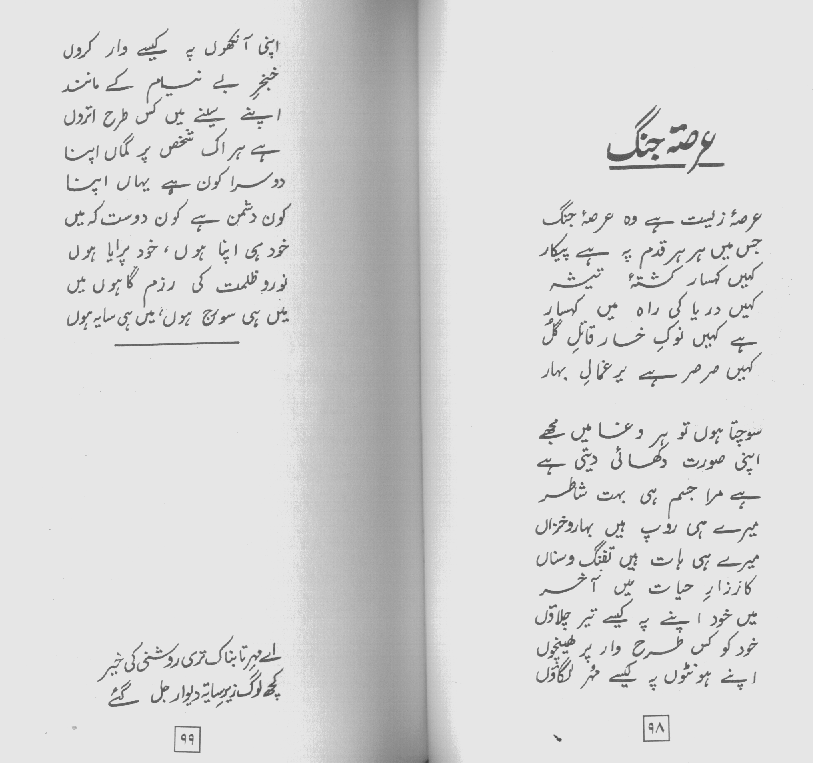 عرصۂ جنگ
عرصۂ زیست ہے وہ عرصۂ جنگ
جس میں ہر ہر قدم پہ ہے پیکار
کہیں کہسار کشتۂ تیشہ
کہیں دریا کی راہ میں کہسار
ہے کہیں نوکِ خار قاتلِ گُل
کہیں صرصر ہے یرغمالِ بہار
سوچتا ہوں تو ہر وغا میں مجھے
اپنی صورت دکھائی دیتی ہے
ہے مرا جسم ہی بہت شاطر
میرے ہی روپ ہیں بہار و خزاں
میرے ہی ہات ہیں تفنگ و سناں
کارزارِ حیات میں آخر
میں خود اپنے پہ کیسے تیر چلاؤں
خود کو کس طرح وار پر کھینچوں
اپنے ہونٹوں پہ کیسے مُہر لگاؤں
۹۸
اپنی آنکھوں پہ کیسے وار کروں
خنجرِ بے نیام کے مانند
اپنے سینے میں کس طرح اتروں
ہے ہر اک شخص پر گماں اپنا
دوسرا کون ہے یہاں اپنا
کون دشمن ہے کون دوست کہ میں
خود ہی اپنا ہوں، خود پرایا ہوں
نور و ظلمت کی رزم گاہوں میں
میں ہی سورج ہوں، میں ہی سایہ ہوں
اے مہرِ تابناک تری روشنی کی خیر
کچھ لوگ زیرِ سایۂ دیوار جل گئے
۹۹